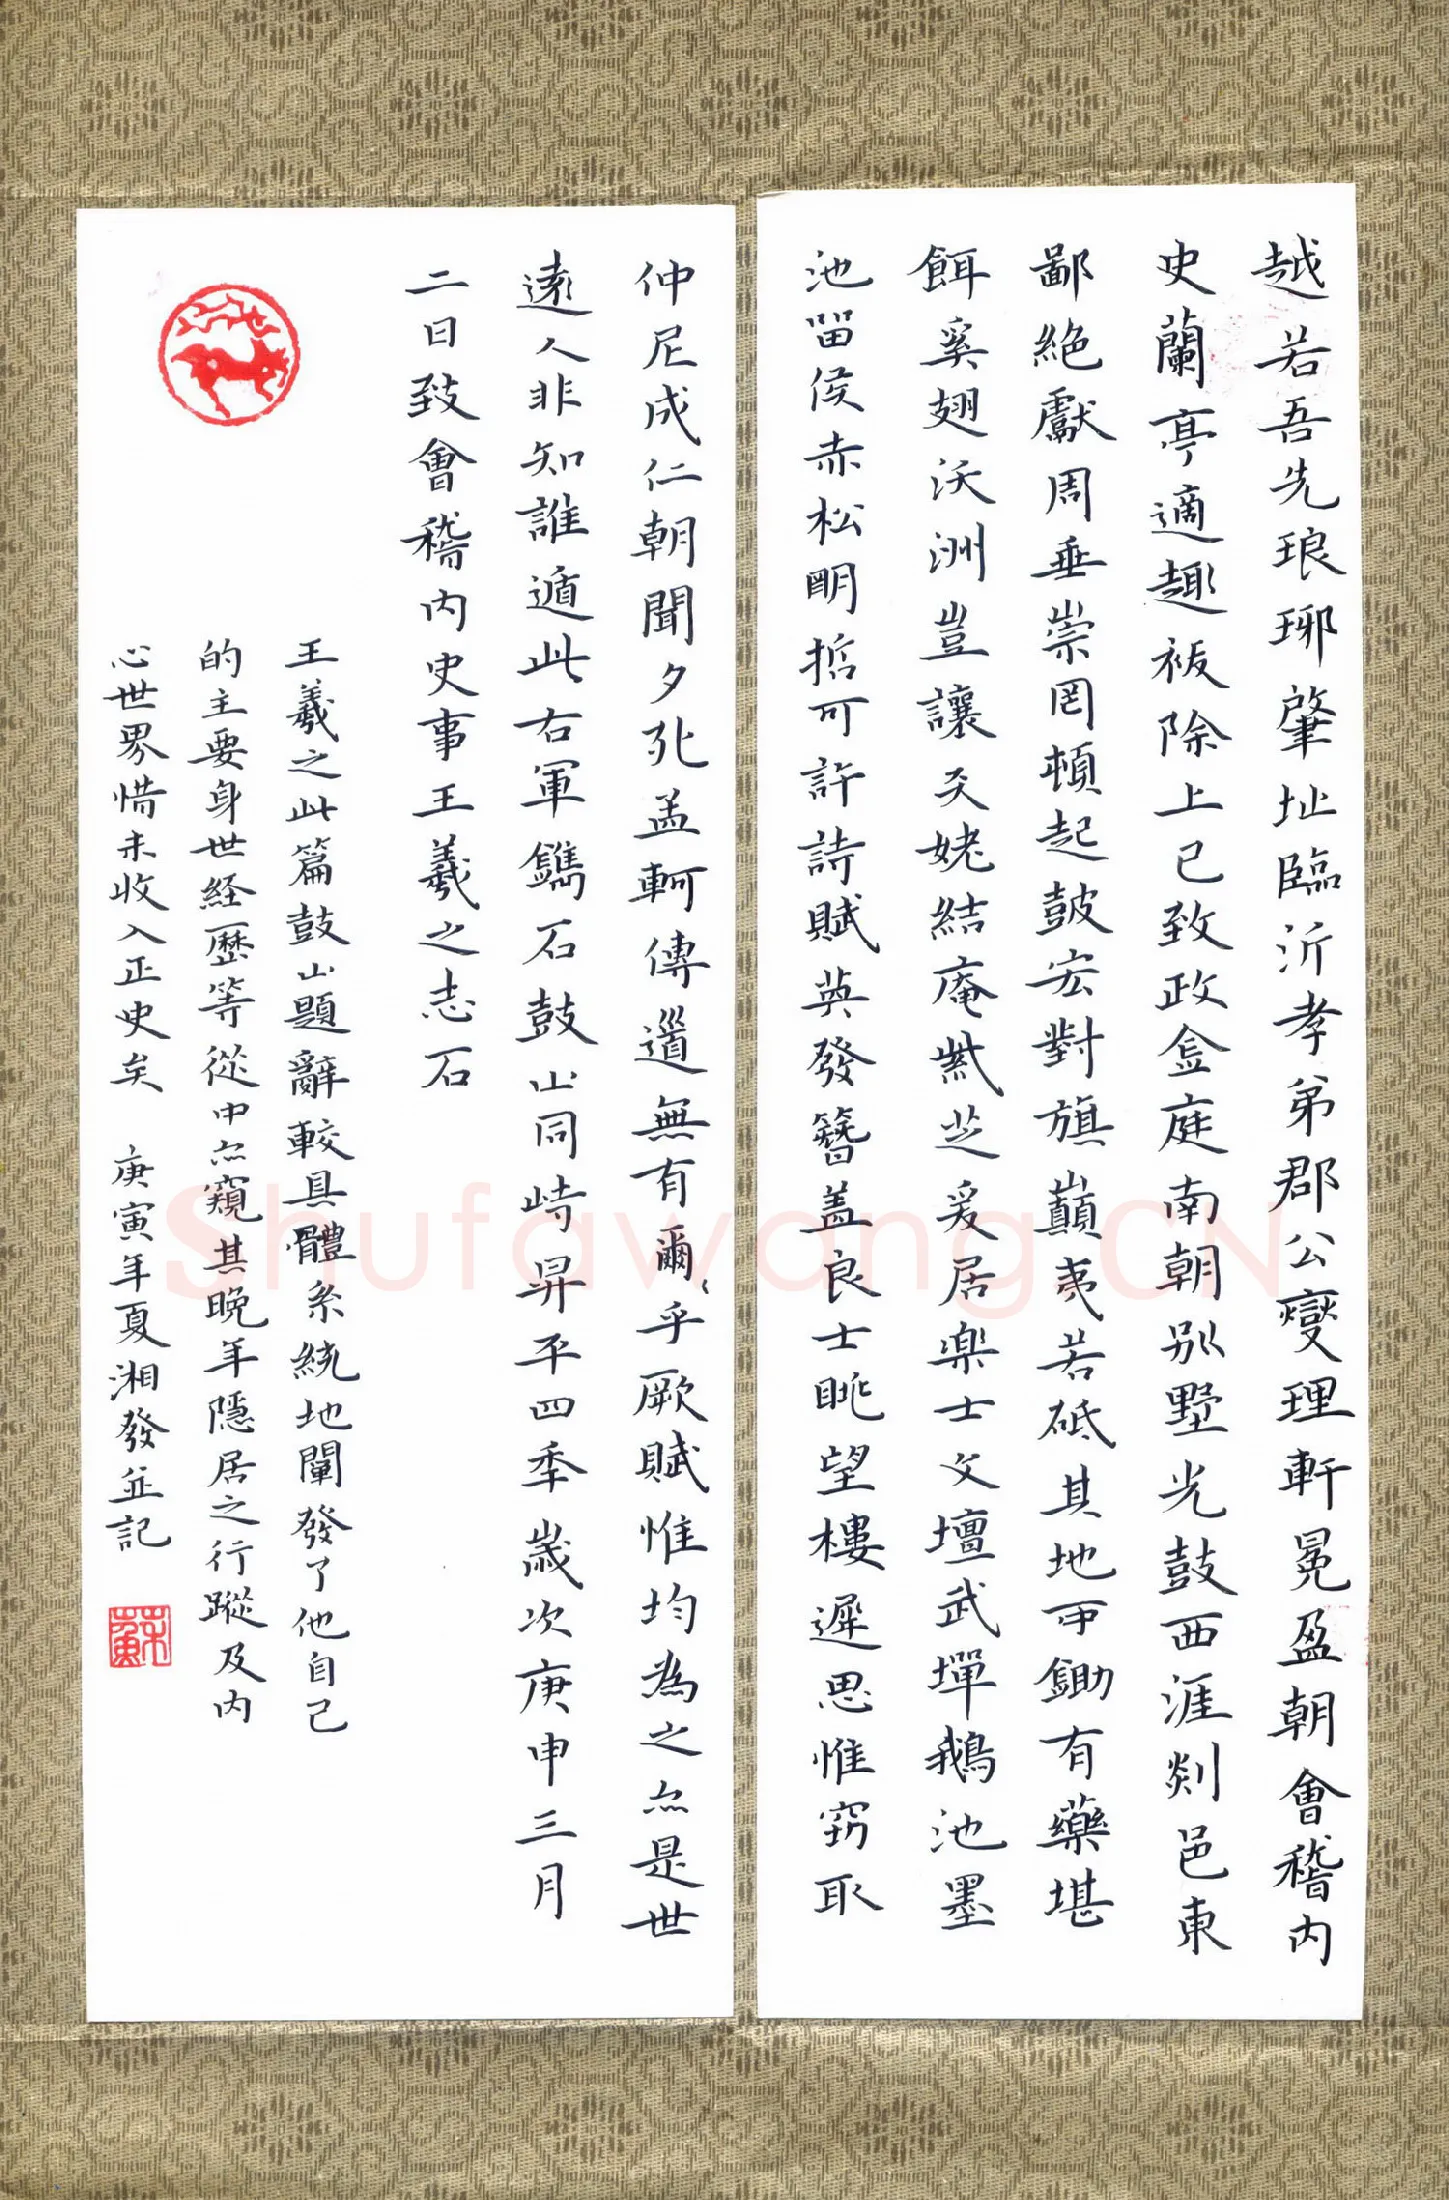 越若吾先琅琊肇址臨沂孝弟郡公燮理軒冕盈朝會稽内
史蘭亭適趣祓除上巳致政金庭南朝别墅光鼓西涯剡邑東
鄙絶獻周垂崇罔頓起皷宏對旗巔夷若砥其地可鋤有藥堪
餌奚翅沃洲豈讓天姥結庵紫芝爰居樂士文壇武墠鵝池墨
池畱侯赤松明哲可許詩賦英發簪盖良士眺望樓遲思惟窃取
仲尼成仁朝聞夕死孟軻傳道無有爾乎厥賦惟均為之亦是世
遠人非知誰遁此右軍鐫石鼓山同峙昇平四季歲次庚申三月
二日致會稽内史事王羲之志石
王羲之此篇鼓山題辭較具體系統地闡發了他自己
的主要身世経歷等從中亦窺其晚年隱居之行蹤及内
心世界惜未收入正史矣 庚寅年夏湘發並記
蘇
Shufawang.CN